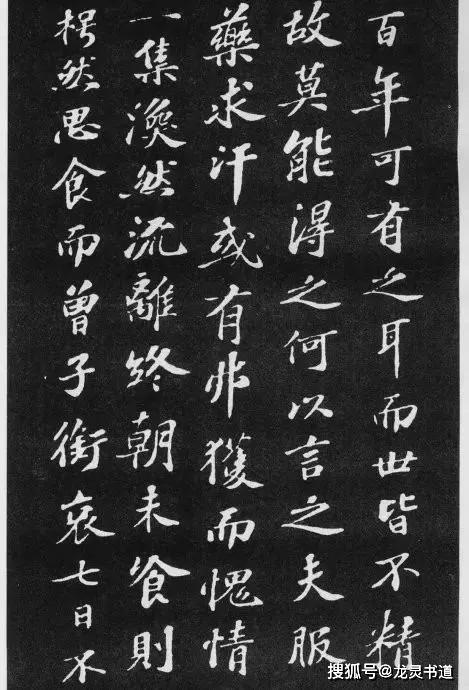 百年可有之耳而世皆不精
故莫能得之何以言之夫服
藥求汗或有弗獲而愧情
一集渙然流離終朝未餐則
枵然思食而曾子銜哀七日不
搜狐号@龙灵书道